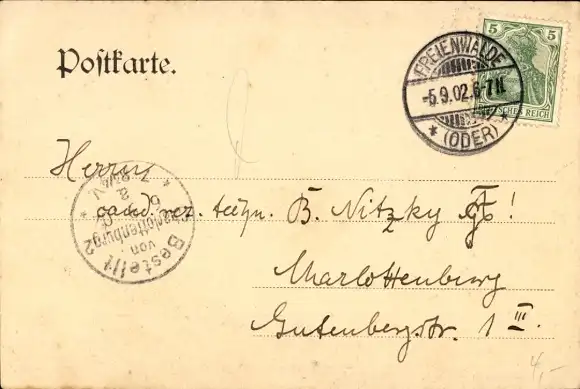 Postkarte.
5 5
DEUTSCHES REICH
FREIENWALDE
-5.9.02.6-7N.
* (ODER) *
Herrn
cand. rer. techn. B. Nitzky !
Charlottenburg
Gutenbergstr. 1 III.
Bestellt
von
Charlottenburg 2
4,-